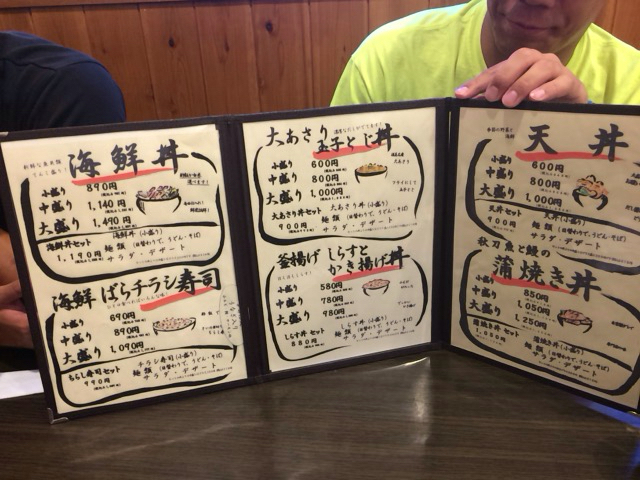 海鮮丼
小盛り 890円
中盛り 1,140円
大盛り 1,490円
海鮮丼セット
1,190円
海鮮丼(小盛り)
麺類(日替わりで、うどん・そば)
サラダ・デザート
海鮮ばらチラシ寿司
小盛り 690円
中盛り 890円
大盛り 1,090円
ちらし寿司セット
990円
チラシ寿司(小盛り)
麺類(日替わりで、うどん・そば)
サラダ・デザート
大あさり
玉子とじ丼
小盛り 600円
中盛り 800円
大盛り 1,000円
大あさり丼セット
900円
大あさり丼(小盛り)
麺類(日替わりで、うどん・そば)
サラダ・デザート
釜揚げしらすと
かき揚げ丼
小盛り 580円
中盛り 780円
大盛り 980円
しらす丼セット
880円
しらす丼(小盛り)
麺類(日替わりで、うどん・そば)
サラダ・デザート
天丼
小盛り 600円
中盛り 800円
大盛り 1,000円
天丼セット
900円
天丼(小盛り)
麺類(日替わりで、うどん・そば)
サラダ・デザート
秋刀魚と鰻の
蒲焼き丼
小盛り 850円
中盛り 1,050円
大盛り 1,250円
蒲焼き丼セット
蒲焼き丼(小盛り)
麺類(日替わりで、うどん・そば)
サラダ・デザート